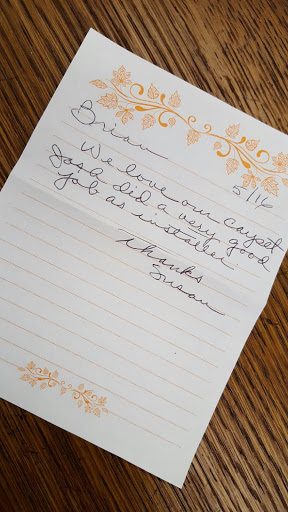 Brian
5/16
We love our carpet
Josh did a very good
job as installer.
Thanks
Susan